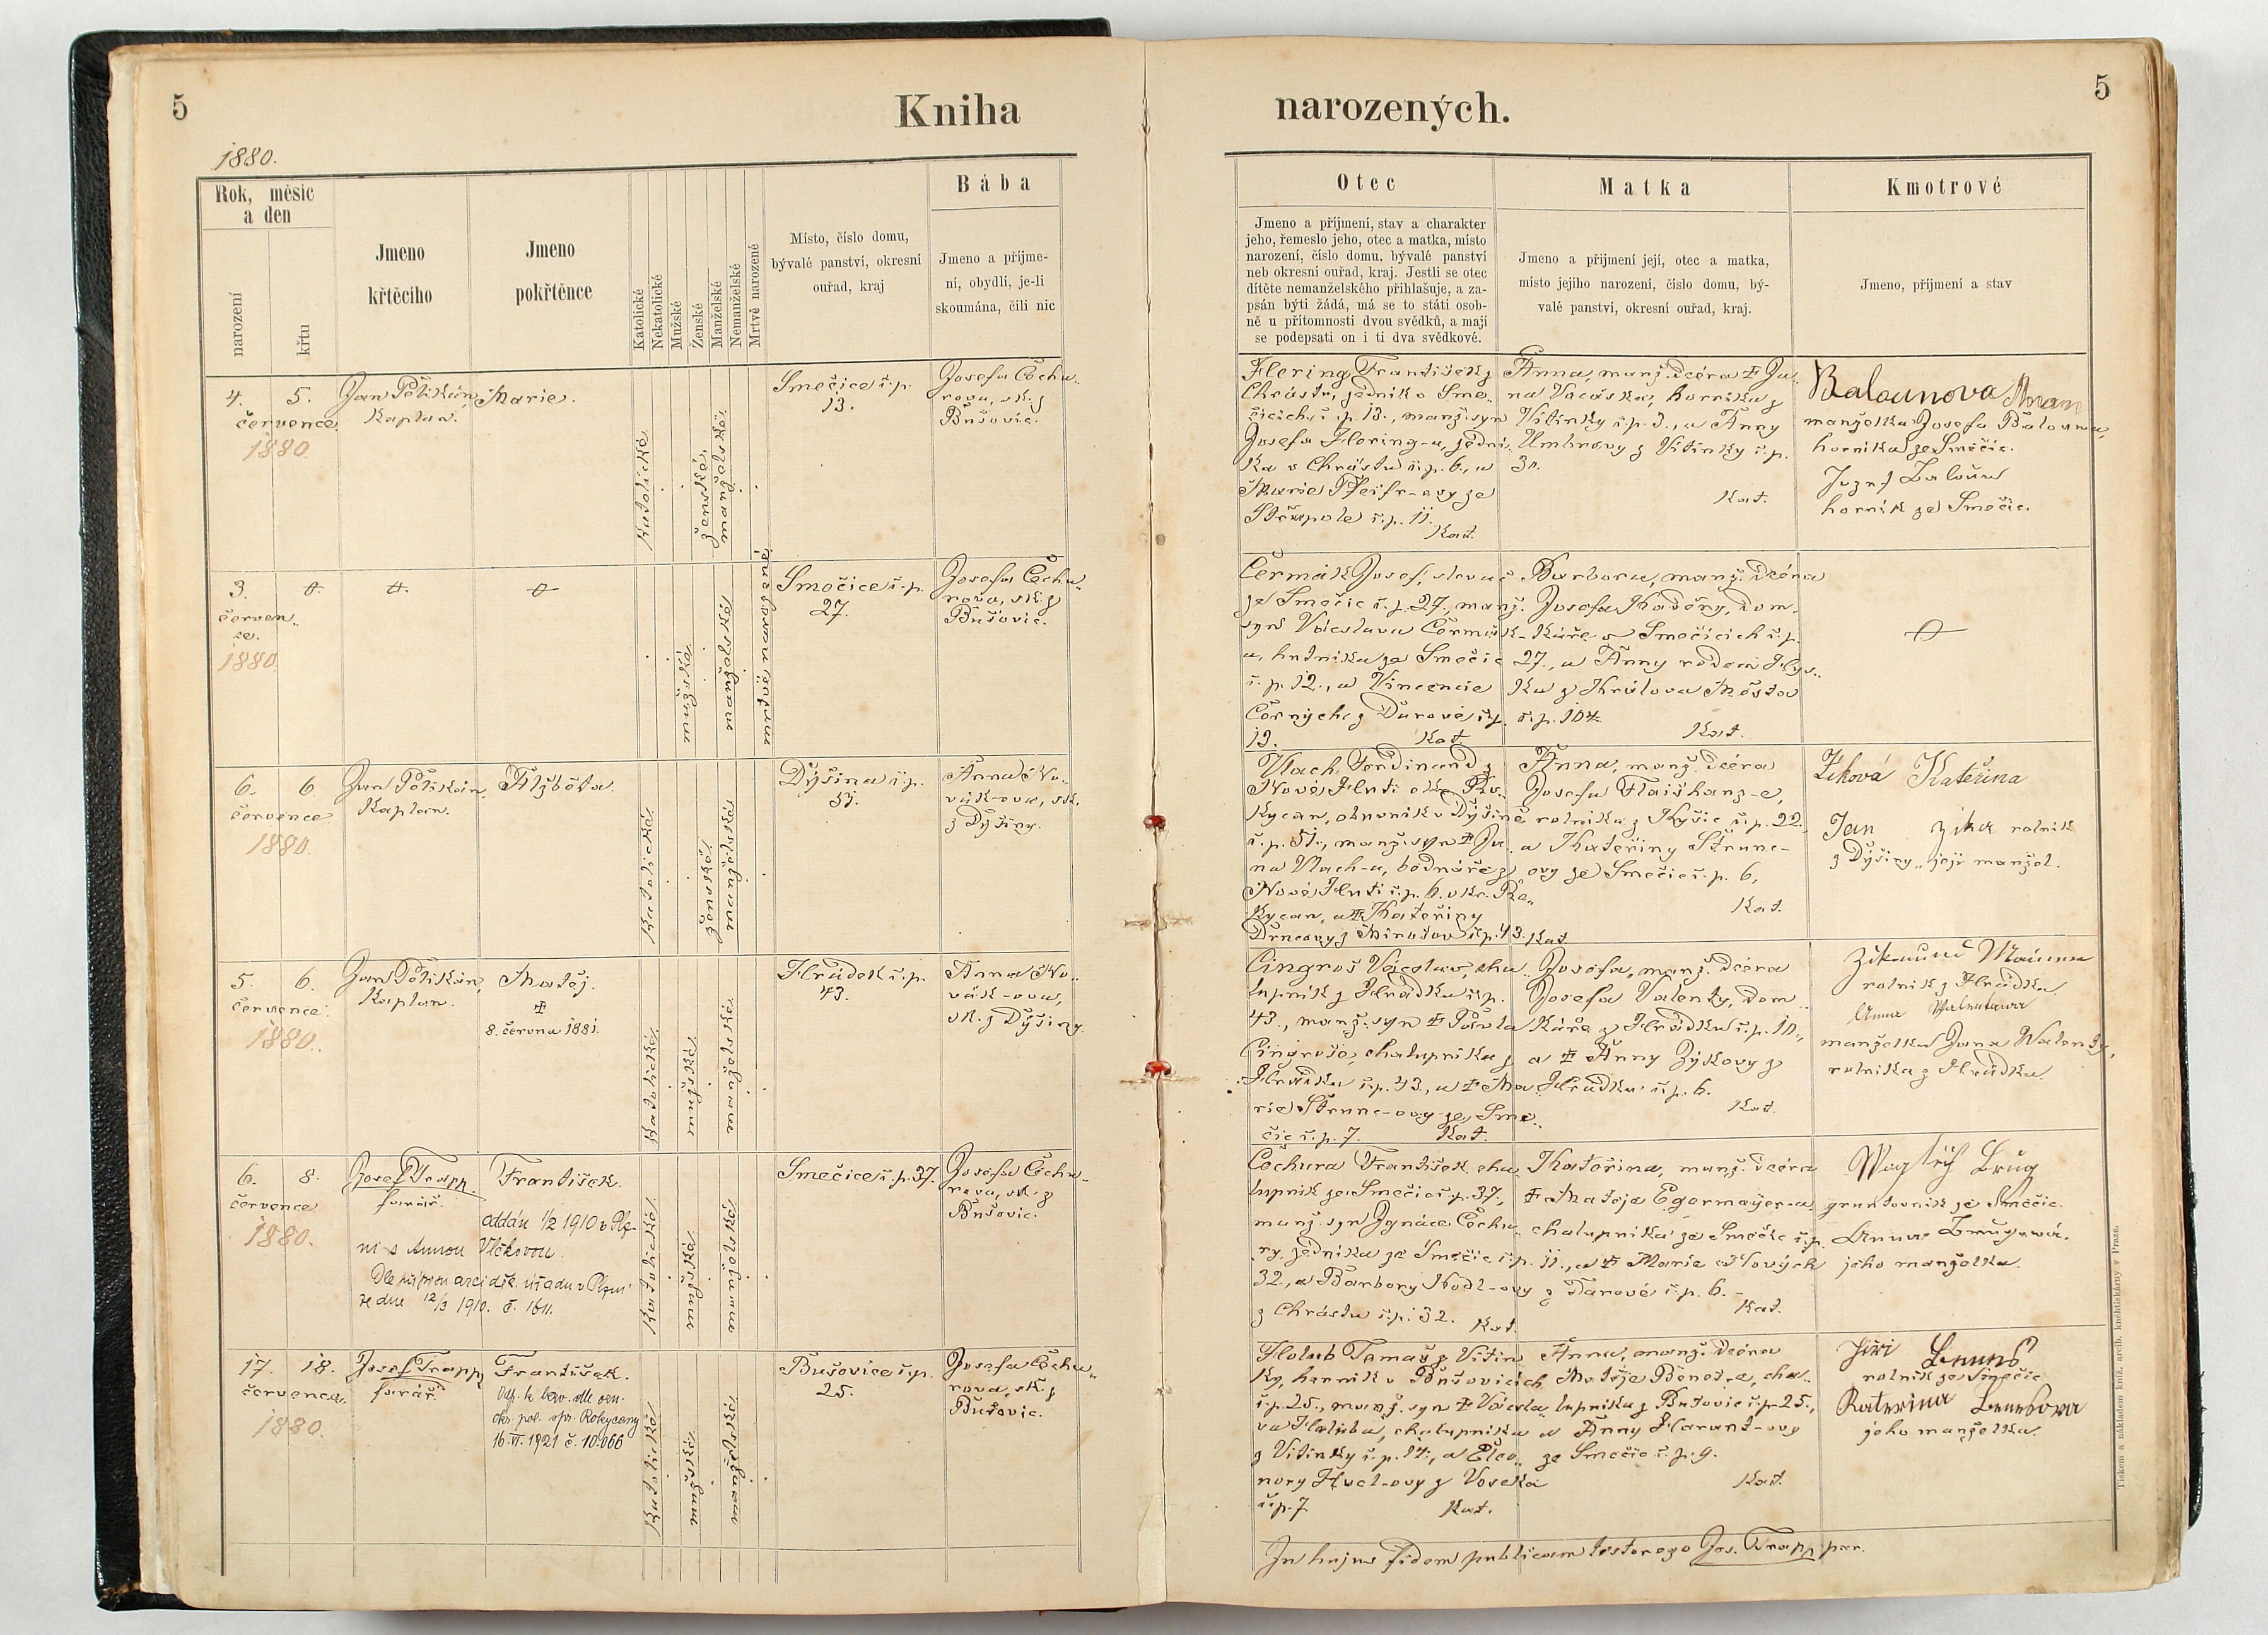 5
Kniha
narozených.
5
1880.
Rok, měsíc
a den
narození
křtu
Jmeno
křtěcího
Jmeno
pokřtěnce
Katolické
Nekatolické
Mužské
Ženské
Manželské
Nemanželské
Mrtvě narozené
Místo, číslo domu,
bývalé panství, okresní
ouřad, kraj
Bába
Jmeno a příjme-
ní, obydlí, je-li
skoumána, čili nic
Otec
Jmeno a příjmení, stav a charakter
jeho, řemeslo jeho, otec a matka, místo
narození, číslo domu, bývalé panství
neb okresní ouřad, kraj. Jestli se otec
dítěte nemanželského přihlašuje, a za-
psán býti žádá, má se to státi osob-
ně u přítomnosti dvou svědků, a mají
se podepsati on i ti dva svědkové.
Matka
Jmeno a příjmení její, otec a matka,
místo jejího narození, číslo domu, bý-
valé panství, okresní ouřad, kraj.
Kmotrové
Jmeno, příjmení a stav
4. 5.
července
1880
Jan Pětikán,
Kaplan.
Marie.
Katolické
ženské
manželské
Smečice č. p.
13.
Josefa Cochu„
rova, sk. z
Bušovic.
Flering František z
Chrástu, jedník v Sme„
čicích č. p. 13., manž. syn
Josefa Flering-a, jední„
ka v Chrástu č. p. 6., a
Marie Pfeifr-ovy ze
Střapole č. p. 11.
Kat.
Anna, manž. dcéra ✠ Ja„
na Vacáska, horníka z
Vitinky č. p. 3., a Anny
Umhrovy z Vitinky č. p.
30.
Kat.
Balounova
manželka Josefa Balouna,
horníka ze Smečic.
Jozef Baloun
horník ze Smečic.
3.
červen„
ce.
1880
Smečice č. p.
27.
Josefa Cochu„
rova, sk. z
Bušovic.
mužské
manželské
mrtvě narozené
Čermák Josef, slevač
ze Smečic č. p. 27., manž.
syn Václava Čermák-
a, hutníka ze Smečic
č. p. 12., a Vincencie
Černých z Darové č. p.
19. Kat.
Barbora, manž. dcéra
Josefa Kaděry, dom„
káře v Smečicích č. p.
27., a Anny rodem Hlys„
ka z Králova Města
č. p. 104.
Kat.
6. 6
července
1880.
Jan Pětikán,
Kaplan.
Alžběta
Katolické
ženské
manželské
Dýšina č. p.
51.
Anna No„
vák-ova, sk.
z Dýšiny.
Vlach Ferdinand z
Nové Huti okr. Ro„
kycan, obuvník v Dýšině
č. p. 51., manž. syn ✠ Ja„
na Vlach-a, bednáře z
Nové Huti č. p. 6. okr. Ro„
kycan, a ✠ Kateřiny
Drncovy z Mirošov č. p. 43. Kat.
Anna, manž. dcéra
Josefa Flaišhanz-a,
rolníka z Kyšic č. p. 22.,
a Kateřiny Štrunc-
ovy ze Smečic č. p. 6,
Kat.
Ziková Kateřina
Jan Zika rolník
z Dýšiny, její manžel.
5. 6.
července
1880.
Jan Pětikán,
Kaplan.
Matěj.
✠
8. června 1881.
Katolické
mužské
manželské
Hrádek č. p.
43.
Anna No„
vák-ova,
sk. z Dýšiny
Cingroš Václav, cha„
lupník z Hrádku č. p.
43., manž. syn ✠ Pavla
Cingroše, chalupníka z
Hrádku č. p. 43., a ✠ Ma„
rie Štrunc-ovy ze Sme„
čic č. p. 7. Kat.
Josefa, manž. dcéra
Josefa Valenty, dom„
káře z Hrádku č. p. 10.,
a ✠ Anny Zýkovy z
Hrádku č. p. 6.
Kat.
Zikmund
rolník z Hrádku
Anna
manželka Jana Valenty,
rolníka z Hrádku.
6. 8.
července
1880.
Josef Trapp
farář.
František.
oddán 1/2 1910 v Plz-
ni s Annou Vlčkovou.
Dle přípisu arciděk. úřadu v Plzni
ze dne 12/3 1910. č. 1611.
Katolické
mužské
manželské
Smečice č. p. 37.
Josefa Cochu-
rova, sk. z
Bušovic.
Cochura František, cha„
lupník ze Smečic č. p. 37.,
manž. syn Ignáce Cochu„
ry, jedníka ze Smečic č. p.
32., a Barbory Hodl-ovy
z Chrástu č. p. 32. Kat.
Kateřina, manž. dcéra
✠ Matěje Egermayer-a,
chalupníka ze Smečic č. p.
11., a ✠ Marie Nových
z Darové č. p. 6.-
Kat.
gruntovník ze Smečic.
Anna
jeho manželka.
17. 18.
července
1880.
Josef Trapp
farář.
František.
16. VI. 1921 č. 10.066
Katolické
mužské
manželské
Bušovice č. p.
25.
Josefa Cochu„
rova, sk. z
Bušovic.
Holub Tomáš z Vitin„
ky, horník v Bušovicích
č. p. 25., manž. syn ✠ Václa„
va Holuba, chalupníka
z Vitinky č. p. 14., a Eleo„
nory Hucl-ovy z Voseka
č. p. 7. Kat.
Anna, manž. dcéra
Matěje Beneš-e, cha„
lupníka z Bušovic č. p. 25.,
a Anny Harant-ovy
ze Smečic č. p. 9.
Kat.
Jiří Beneš
rolník ze Smečic
Katerina Benešova
jeho manželka.
In hujus fidem publicam testor ego Jos. Trapp par.
Tiskem a nákladem kníž. arcib. knihtiskárny v Praze.